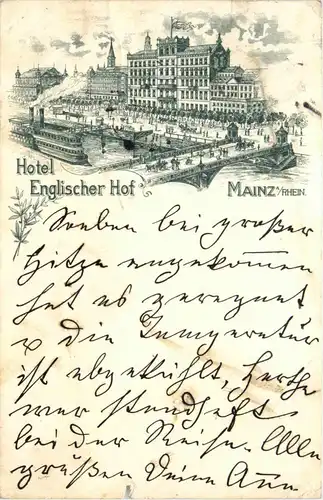 Hotel
Englischer Hof
MAINZ a/RHEIN.
Soeben bei großer
Hitze angekommen
hat es geregnet
u die Temperatur
ist abgekühlt, Herthe
war standhaft
bei der Reise. Alle
grüßen Deine Anna